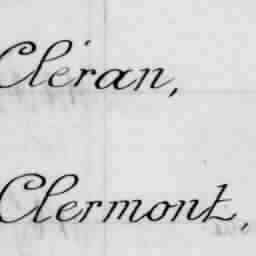 Cléran,
Clermont,